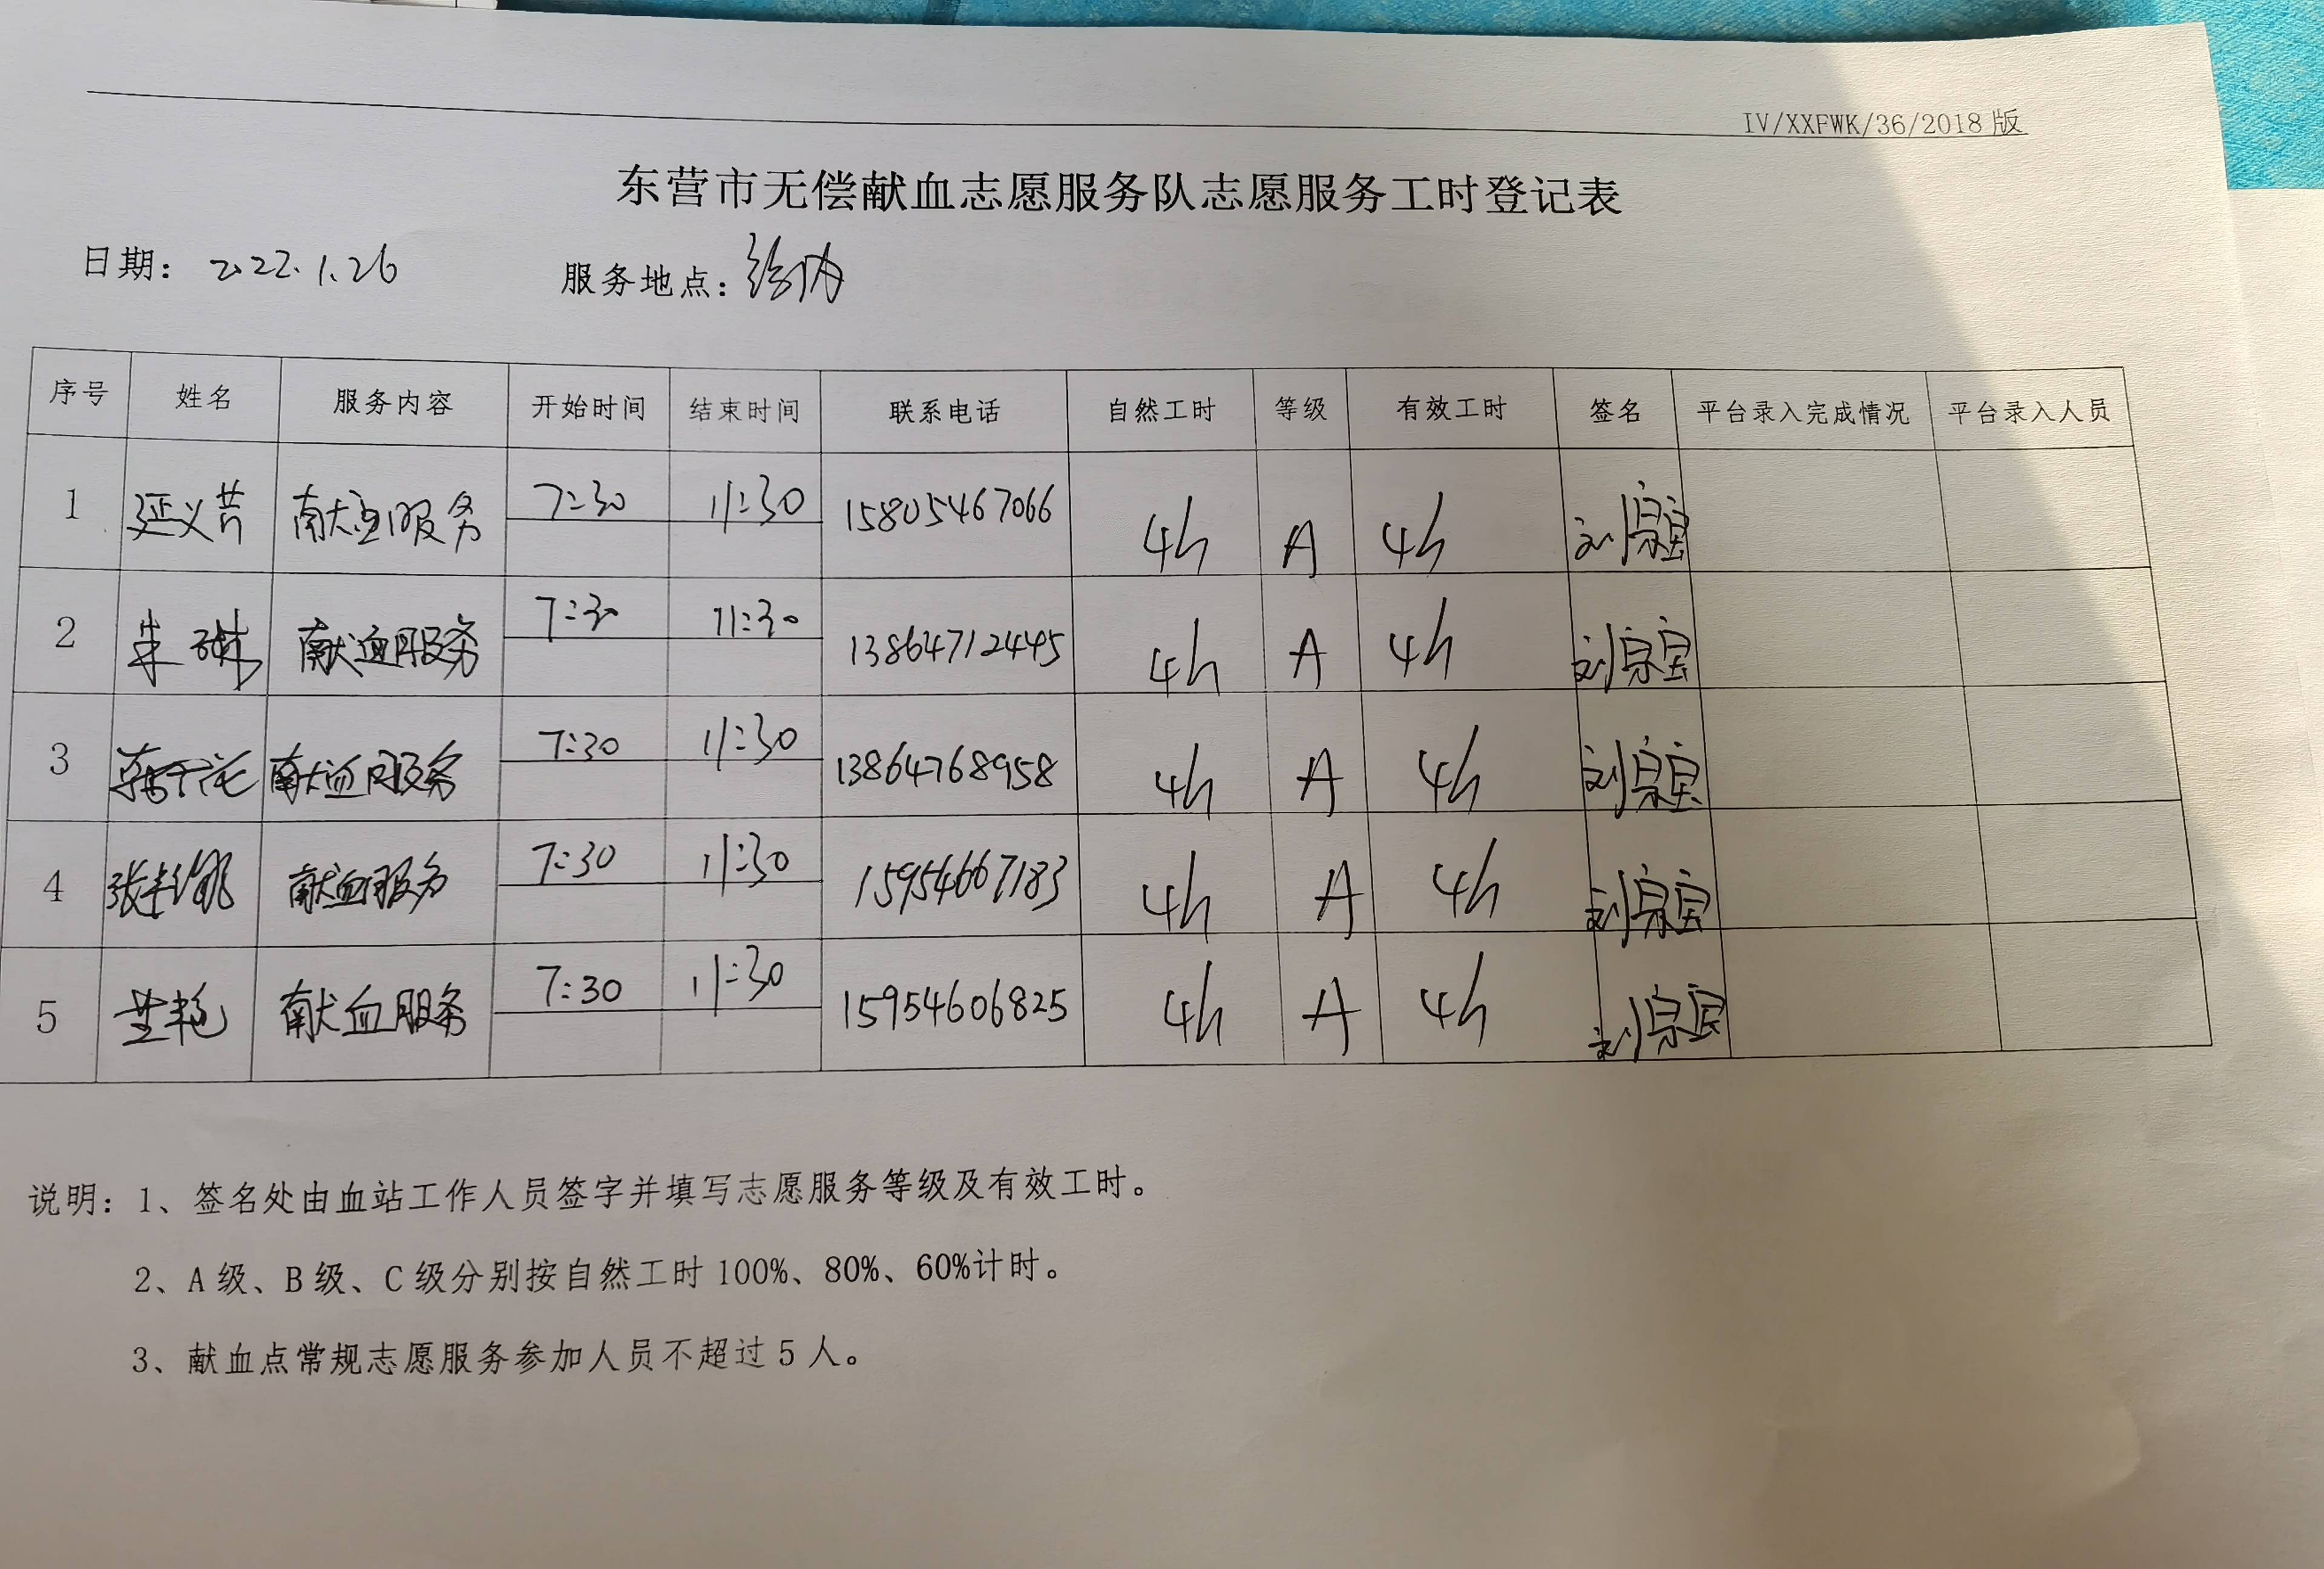 IV/XXFWK/36/2018版
东营市无偿献血志愿服务队志愿服务工时登记表
日期：2022.1.26 服务地点：
序号 姓名 服务内容 开始时间 结束时间 联系电话 自然工时 等级 有效工时 签名 平台录入完成情况 平台录入人员
1 延义芳 献血服务 7:30 11:30 15805467066 4h A 4h 刘宗宝
2 朱琳 献血服务 7:30 11:30 13864712445 4h A 4h 刘宗宝
3 献血服务 7:30 11:30 13864768958 4h A 4h 刘宗宝
4 献血服务 7:30 11:30 15954667183 4h A 4h 刘宗宝
5 献血服务 7:30 11:30 15954606825 4h A 4h 刘宗宝
说明：1、签名处由血站工作人员签字并填写志愿服务等级及有效工时。
2、A级、B级、C级分别按自然工时100%、80%、60%计时。
3、献血点常规志愿服务参加人员不超过5人。